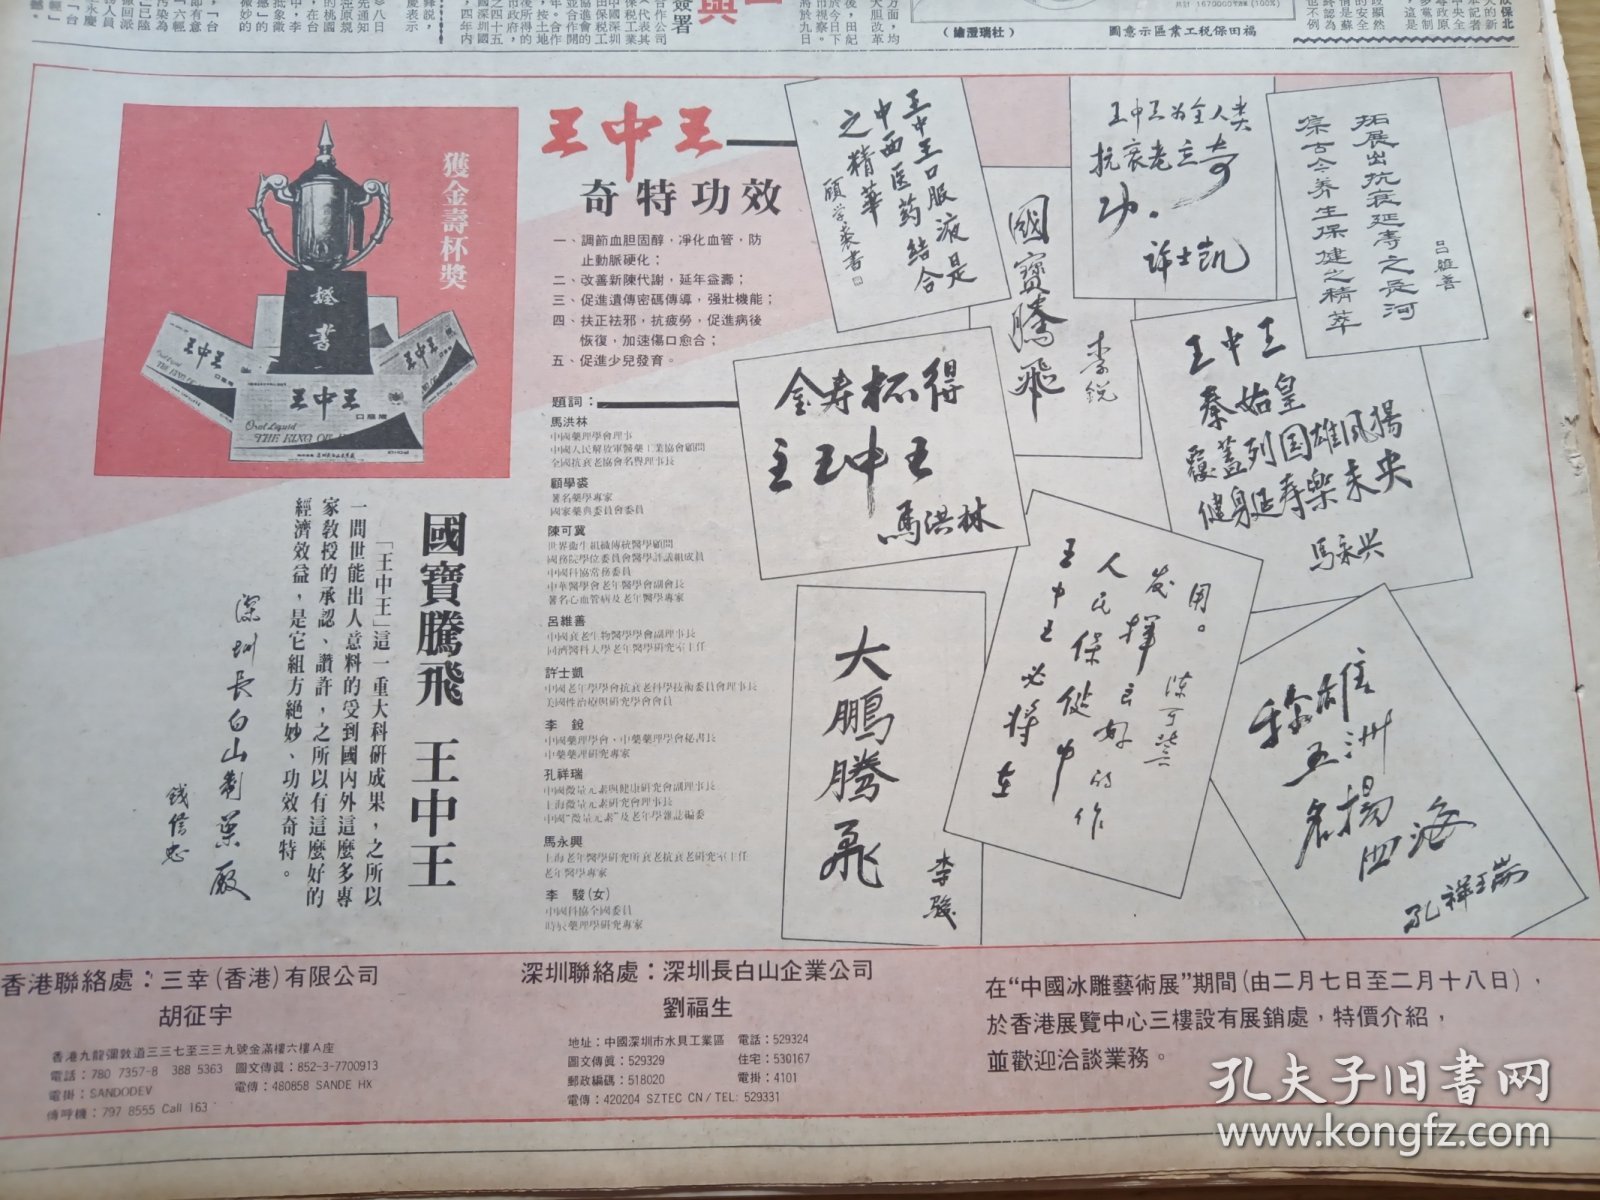 福田保税工業區示意圖
（杜瑞澄繪）
簽署
獲金壽杯獎
證書
王中王
口服液
Oral Liquid
王中王
奇特功效
一、調節血胆固醇，凈化血管，防
止動脈硬化；
二、改善新陳代謝，延年益壽；
三、促進遺傳密碼傳導，强壯機能；
四、扶正袪邪，抗疲勞，促進病後
恢復，加速傷口愈合；
五、促進少兒發育。
題詞：
馬洪林
中國藥理學會理事
中國人民解放軍醫藥工業協會顧問
全國抗衰老協會名譽理事長
顧學裘
著名藥學專家
國家藥典委員會委員
陳可冀
世界衞生組織傳統醫學顧問
國務院學位委員會醫學評議組成員
中國科協常務委員
中華醫學會老年醫學會副會長
著名心血管病及老年醫學專家
呂維善
中國衰老生物醫學學會副理事長
同濟醫科大學老年醫學研究室主任
許士凱
中國老年學學會抗衰老科學技術委員會理事長
美國性治療與研究學會會員
李 銳
中國藥理學會、中藥藥理學會秘書長
中藥藥理研究專家
孔祥瑞
中國微量元素與健康研究會副理事長
上海微量元素研究會理事長
中國“微量元素”及老年學雜誌編委
馬永興
上海老年醫學研究所衰老抗衰老研究室主任
老年醫學專家
李 駿（女）
中國科協全國委員
時辰藥理學研究專家
國寶騰飛 王中王
「王中王」這一重大科研成果，之所以
一問世能出人意料的受到國內外這麼多專
家教授的承認、讚許，之所以有這麼好的
經濟效益，是它組方絕妙、功效奇特。
深圳長白山制藥廠
錢信忠
王中王口服液是
中西医药结合
之精華
顾学裘書
國寶騰飛
李銳
王中王为全人类
抗衰老立奇
功。
许士凯
拓展出抗衰延寿之长河
集古今养生保健之精萃
吕維善
金寿杯得
主王中王
馬洪林
王中王
秦始皇
覆蓋列国雄风揚
健身延寿樂未央
馬永兴
大鵬腾飛
李駿
王中王必将在
人民保健中
发揮良好的作
用。
陈可冀
称雄
五洲
名揚
四海
孔祥瑞
香港聯絡處：三幸（香港）有限公司
胡征宇
香港九龍彌敦道三三七至三三九號金滿樓六樓A座
電話：780 7357-8 388 5363 圖文傳眞：852-3-7700913
電掛：SANDODEV 電傳：480858 SANDE HX
傳呼機：797 8555 Call 163
深圳聯絡處：深圳長白山企業公司
劉福生
地址：中國深圳市水貝工業區 電話：529324
圖文傳眞：529329 住宅：530167
郵政編碼：518020 電掛：4101
電傳：420204 SZTEC CN / TEL: 529331
在“中國冰雕藝術展”期間（由二月七日至二月十八日），
於香港展覽中心三樓設有展銷處，特價介紹，
並歡迎洽談業務。
孔夫子旧书网
www.kongfz.com